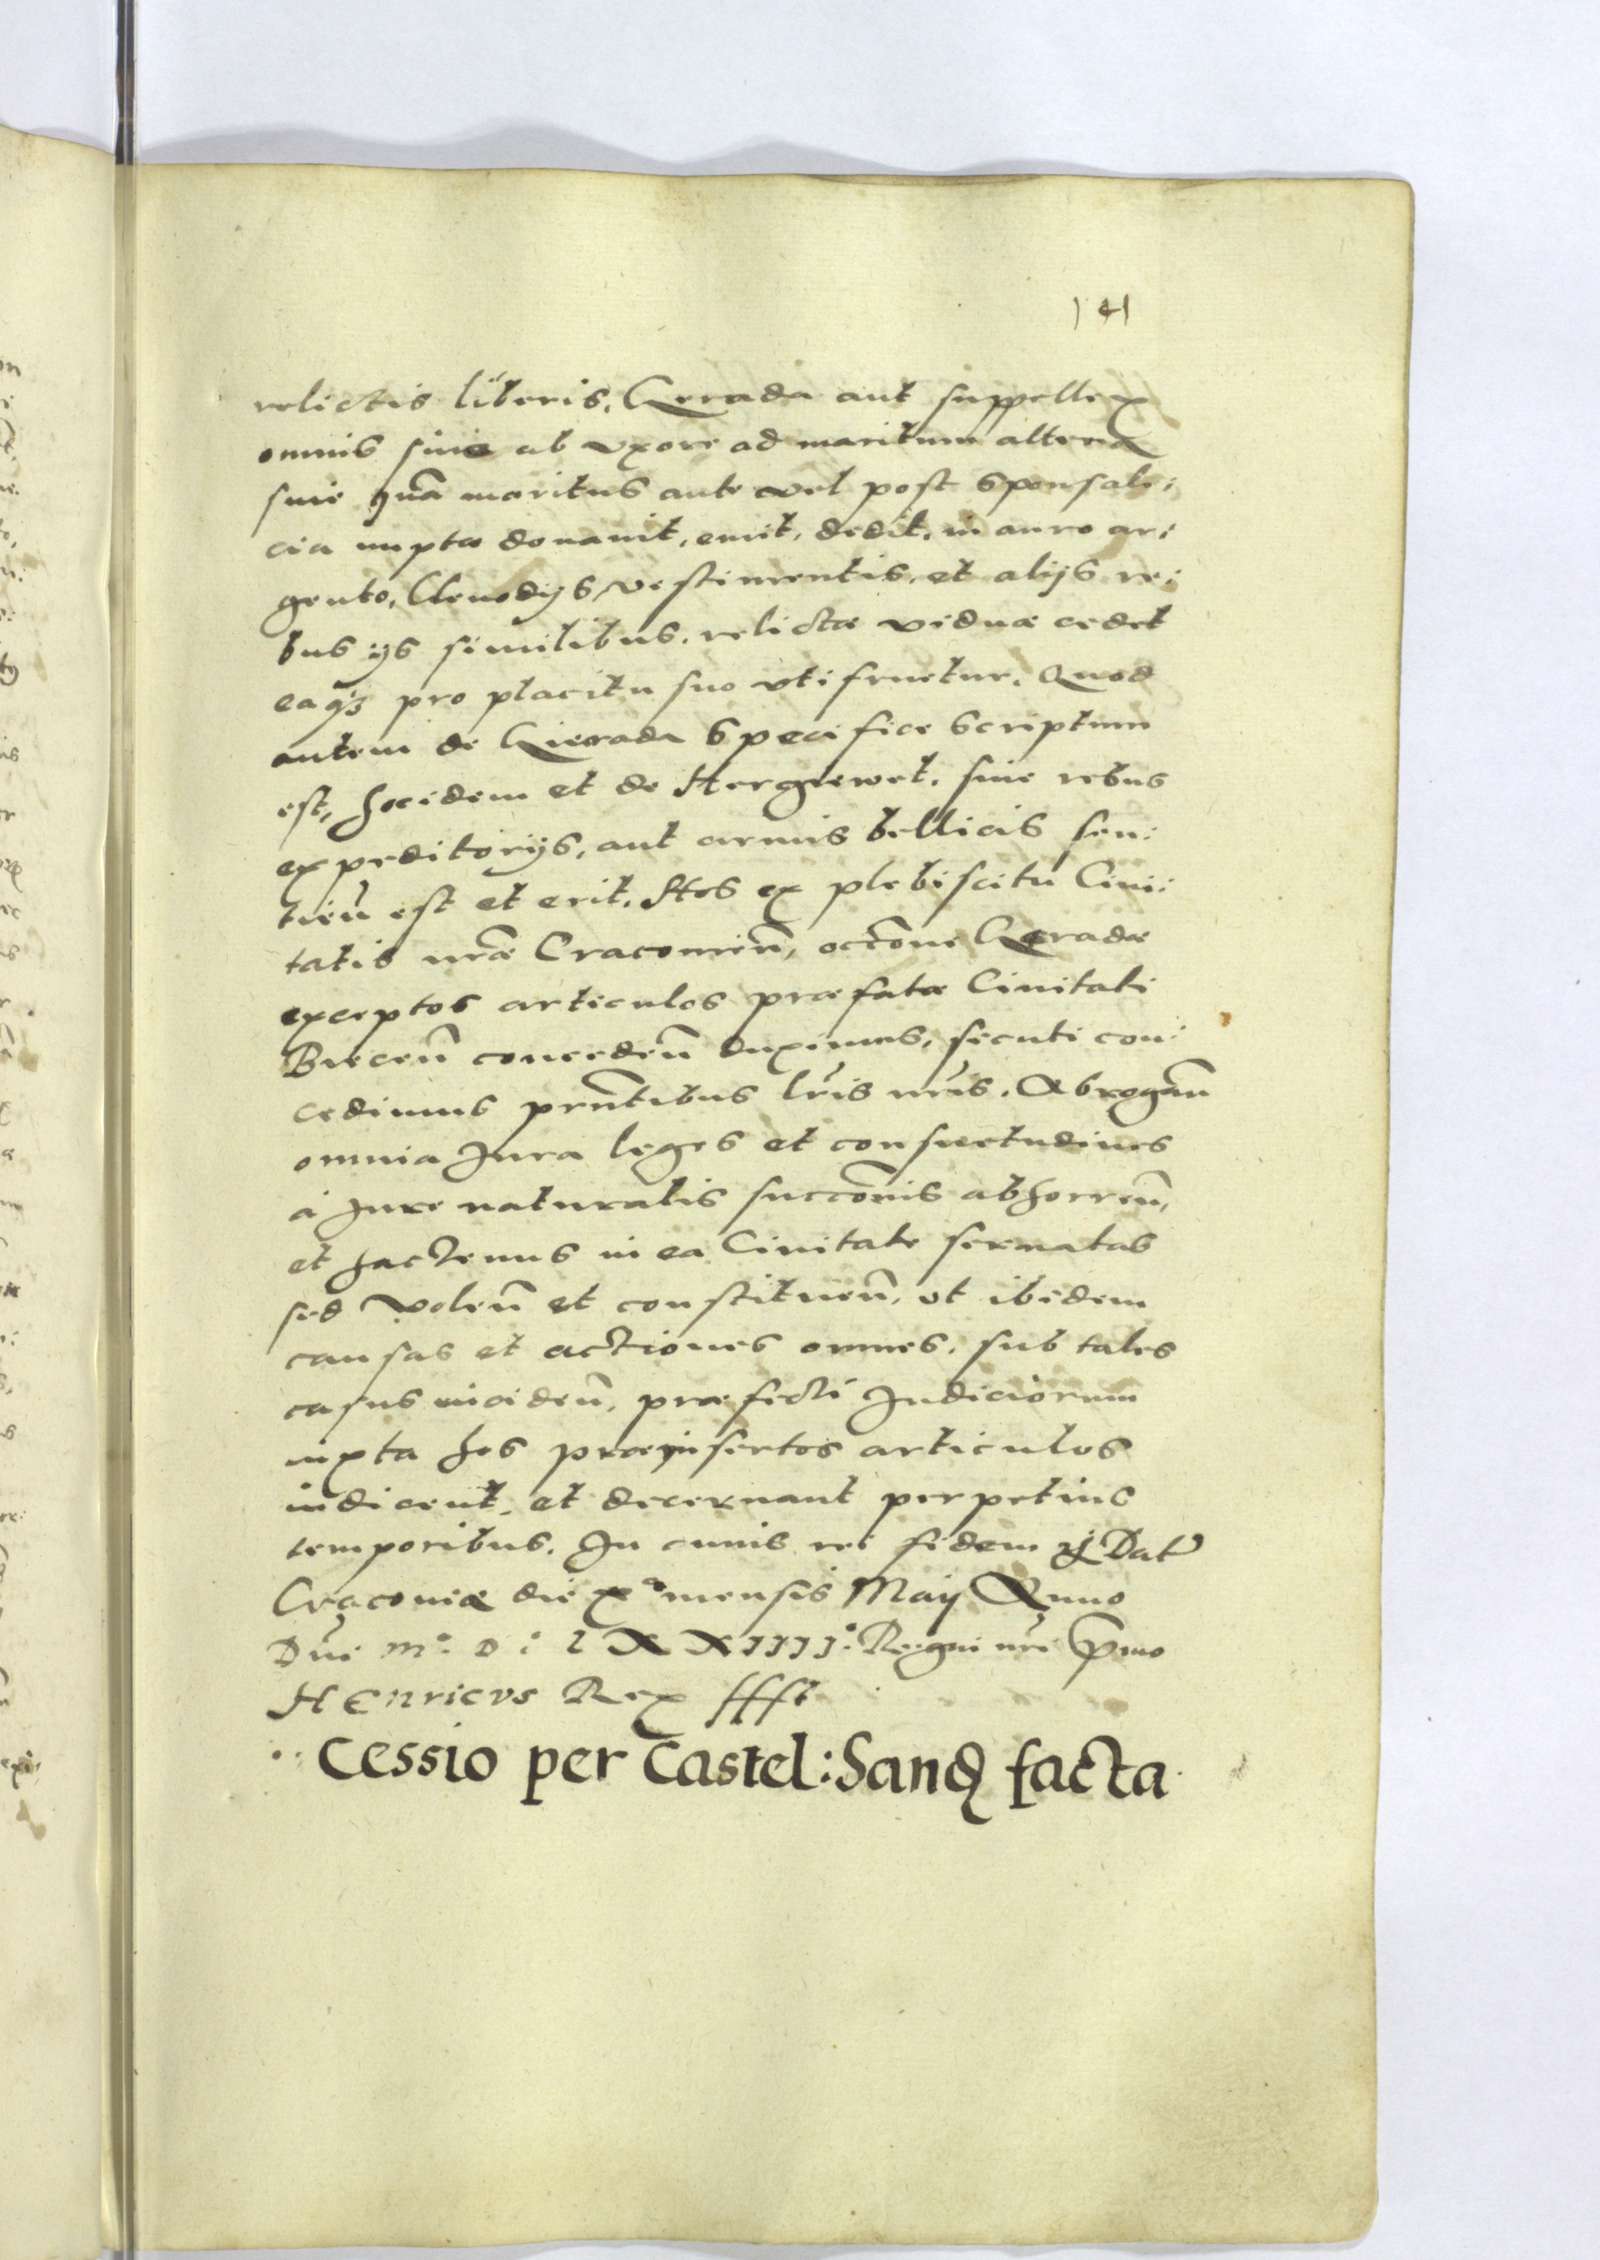 141
relictis liberis, Gerada aut suppellex
omnis siue ab vxore ad maritum allena
siue quã maritus ante vel post sponsali:
cia nuptæ donauit, emit, dedit, in auro ar:
gento, Clenodijs vestimentis, et alijs re:
bus ijs similibus, relictæ viduæ cedet
eaq3 pro placitu suo vti fruetur. Quod
autem de Gierada specifice scriptum
est, hocidem et de Hergiewet, siue rebus
expeditorijs, aut armis bellicis sen:
tien̄ est et erit. Hos ex plebiscitu Ciui:
tatis nr̃æ Cracouien̄, occõne Geradæ
exceptos articulos præfatæ Ciuitati
Biecen̄ conceden̄ duximus, secuti con:
cedimus pr̃ntibus lr̃is nr̃is. Abrogan̄
omnia Jura leges et consuetudines
à Jure naturalis succõnis abhorren̄,
et hactenus in ea Ciuitate seruatas
sed volen̄ et constituen̄, vt ibidem
causas et actiones omnes, sub tales
casus inciden̄, præfecti Judiciorum
iuxta hos præinsertos articulos
iudicent, et decernant perpetuis
temporibus. In cuius rei fidem &c Dat
Cracouiæ die xa mensis Maij Anno
Dñi M° D° L X X IIII°. Regni nr̃i Pmo
HEnricvs Rex ssst
Cessio per Castel: Sand facta